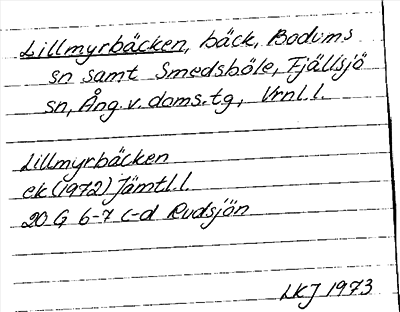 Lillmyrbäcken, bäck, Bodums
sn samt Smedsböle, Fjällsjö
sn, Ång.v.doms.tg, Vrnl.l.
Lillmyrbäcken
ek (1972) Jämtl.l.
20 G 6-7 c-d Rudsjön
LKJ 1973